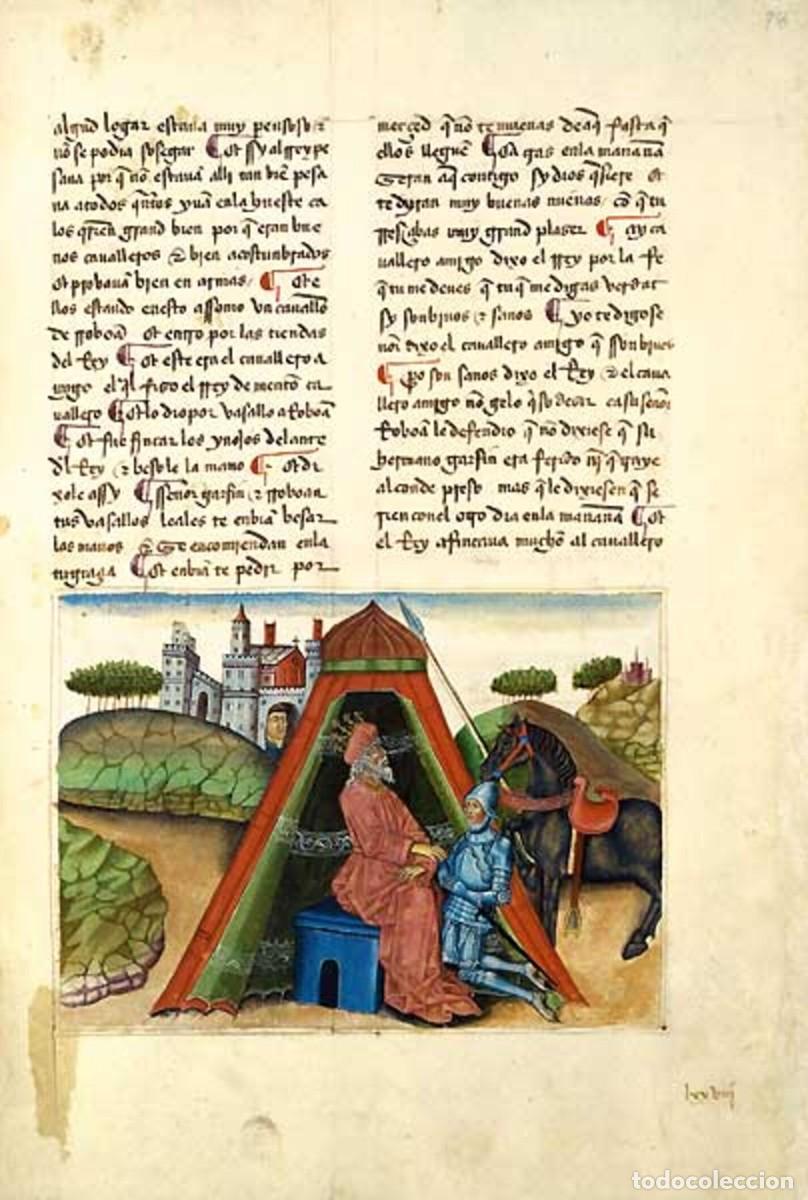 algund logar estaua muy pensoso &
nõ se podia sosegar Et sy al rrey pe
saua por q̃ nõ estauan alli tan biẽ pesa
ua a todos quãtos yuan en la hueste ca
los q̃rien grand bien por q̃ eran bue
nos caualleros & bien acostunbrados
Et prouauan bien en armas Et e
llos estando en esto assomo vn cauallo
de rroboã Et entro por las tiendas
del Rey Et este era el cauallero a
migo el q̃l fiso el rrey de mentõ ca
uallero Et lo dio por vasallo a Roboã
Et fue fincar los ynojos delante
dl Rey & besole la mano Et di
xole assy Señor garfin & rroboan
tus vasallos leales te enbiã besar
las manos & se encomiendan en la
tu graçia Et enbiã te pedir por
merçed q̃ nõ te mueuas de aq̃ fasta q̃
ellos lleguẽ Ca cras en la mañana
seran aq̃ contigo sy dios q̃siere Et
te dyran muy buenas nueuas cõ q̃ tu
rresçibas muy grand plaser Ay ca
uallero amigo dixo el rrey por la fe
q̃ tu me deues q̃ tu q̃ me digas verdat
sy son biuos & sanos Yo te digo se
ñor dixo el cauallero amigo q̃ son biuos
Po son sanos dixo el Rey & el caua
llero amigo nõ gelo q̃so desir ca su señor
Roboã le defendio q̃ nõ dixiese q̃ su
hermano garfin era ferido nĩ q̃ traye
al conde preso mas q̃ le dixiesen q̃ se
rien con el otro dia en la mañana Et
el Rey afincaua mucho al cauallero
lxxviij
todocoleccion